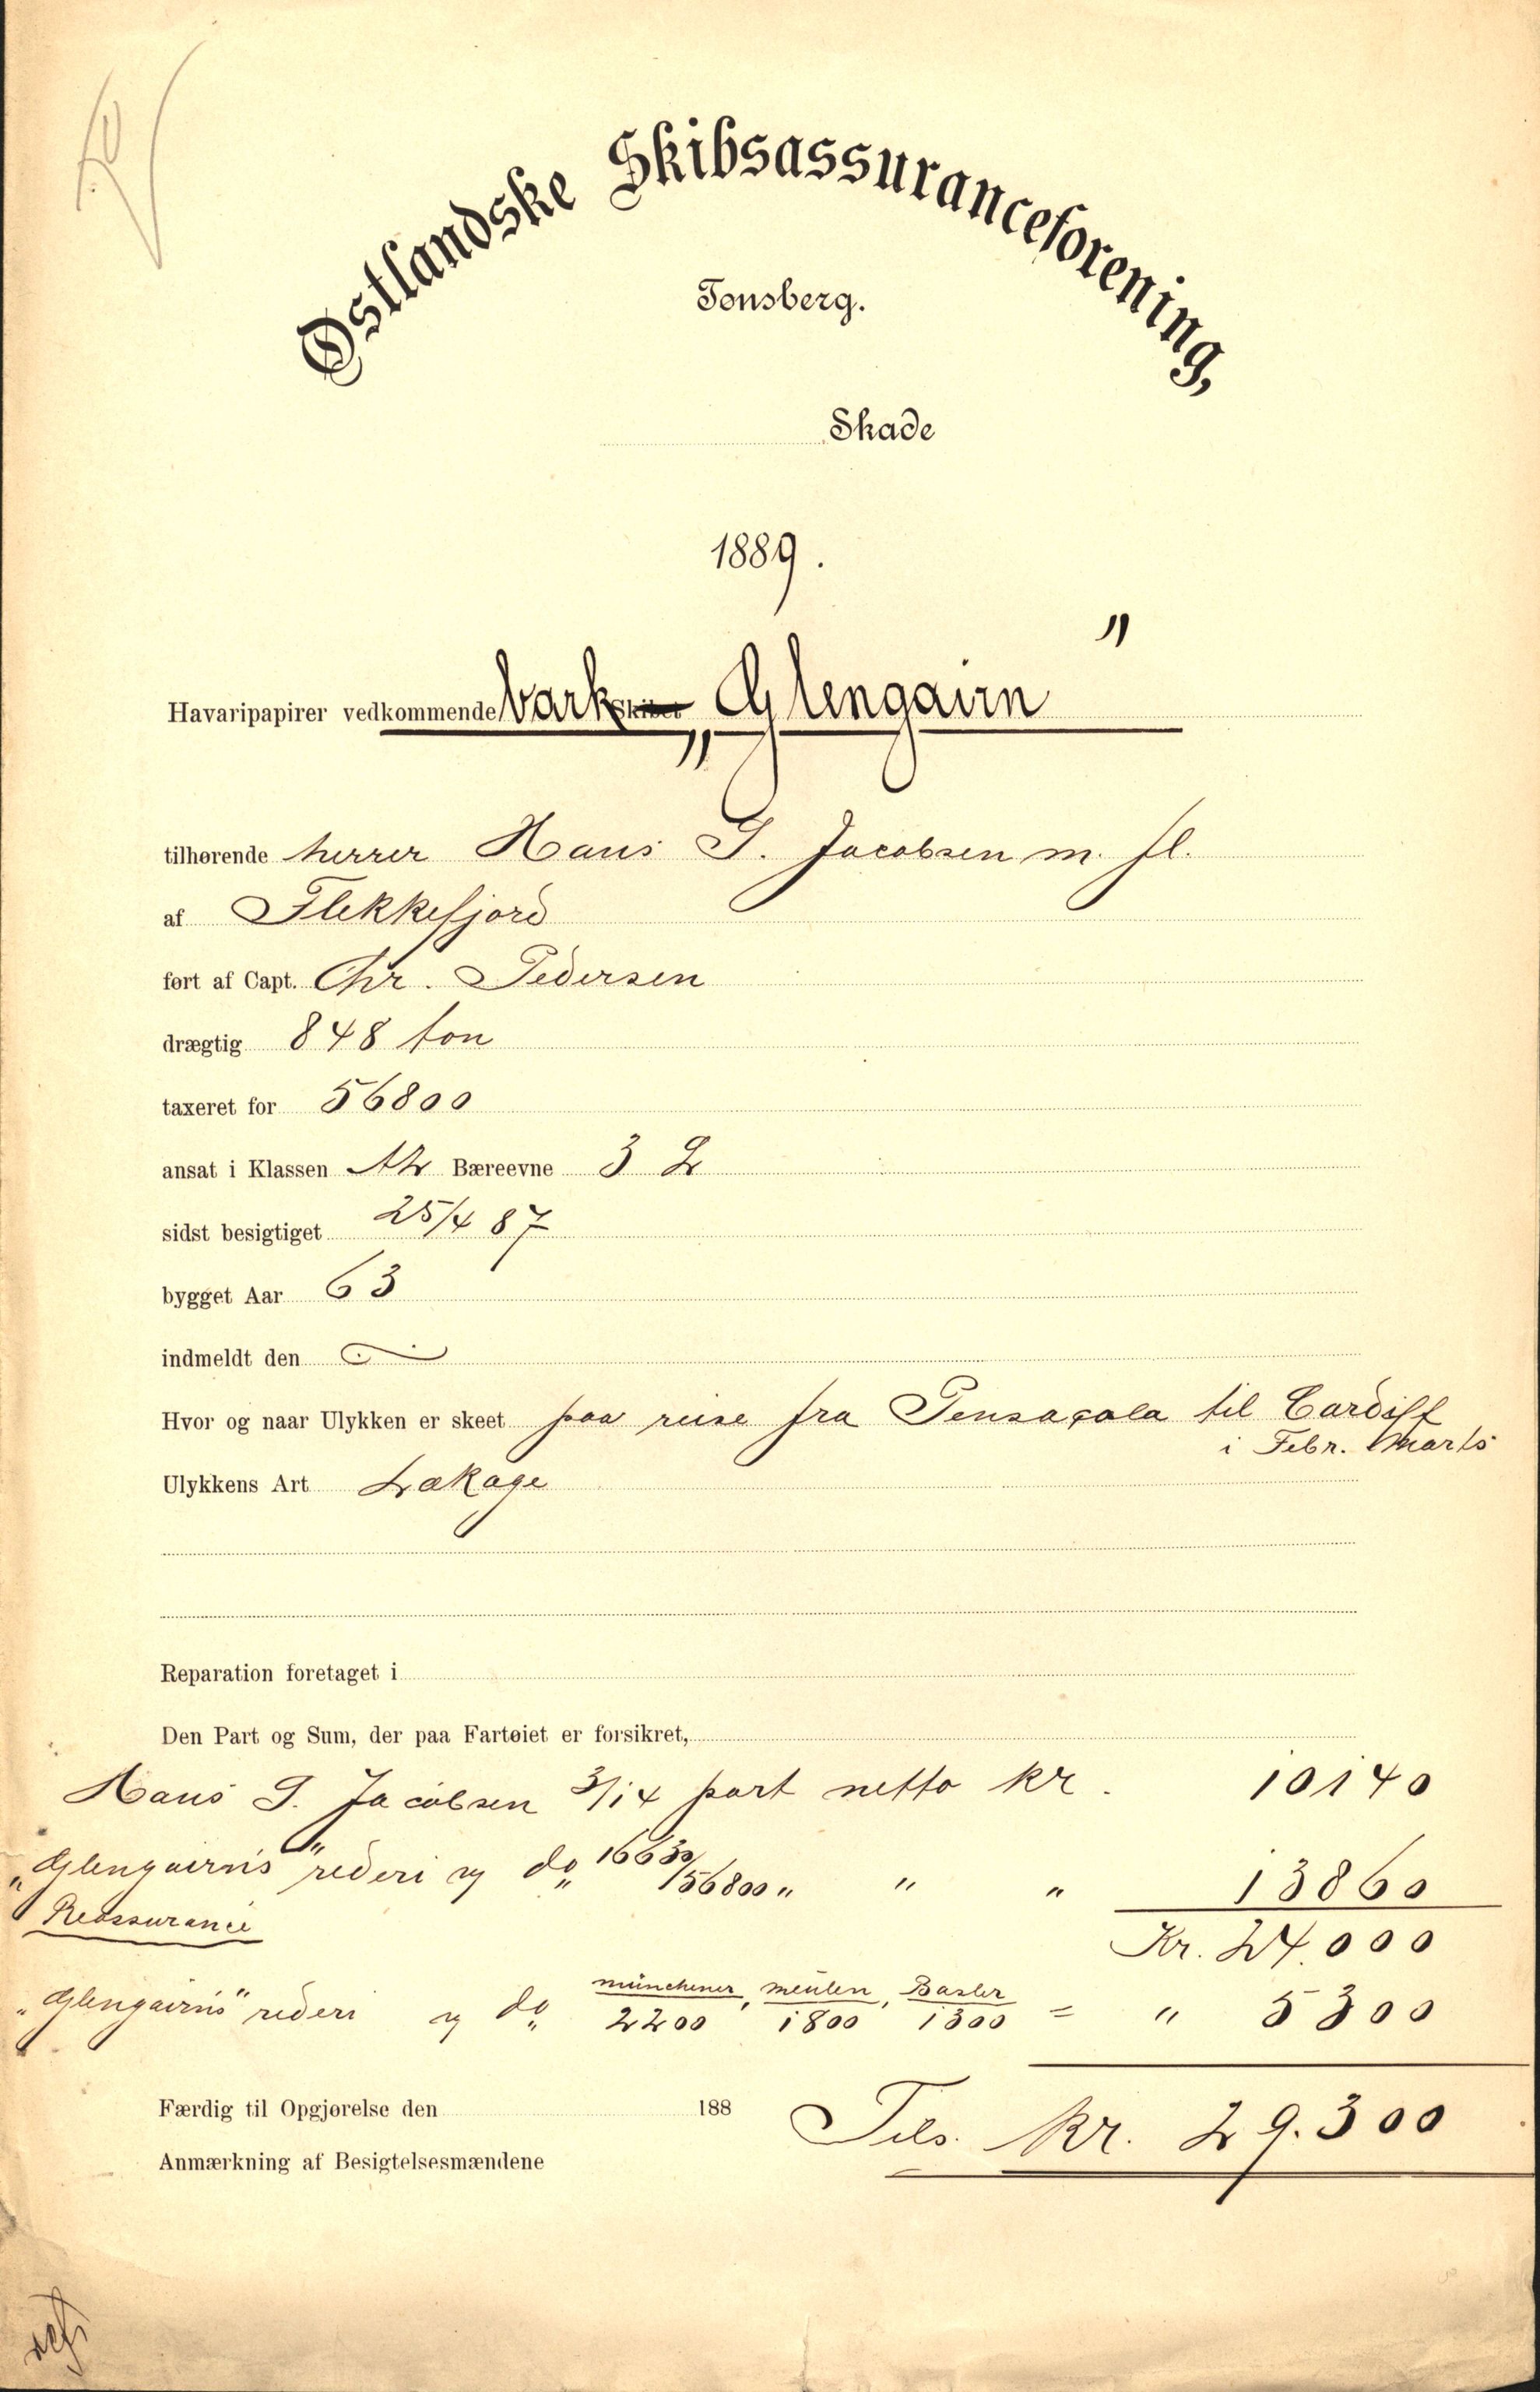 Østlandske Skibsassuranceforening,
Tønsberg.
Skade
1889.
Havaripapirer vedkommende bark Skibet „Glengairn"
tilhørende herrer Hans G. Jacobsen m. fl.
af Flekkefjord
ført af Capt. Chr. Pedersen
drægtig 848 ton
taxeret for 56800
ansat i Klassen A2 Bæreevne 3 L
sidst besigtiget 25/4 87
bygget Aar 63
indmeldt den
Hvor og naar Ulykken er skeet paa reise fra Pensacola til Cardiff
i Febr. Marts
Ulykkens Art Lækage
Reparation foretaget i
Den Part og Sum, der paa Fartøiet er forsikret,
Hans G. Jacobsen 3/14 part netto kr. 10140
„Glengairns" rederi do „ 16630/56800 " " " 13860
Reassurance
Kr. 24.000
münchener, meulen, Basler
„Glengairns" rederi do „ 2200 1800 1300 = " 5300
Færdig til Opgjørelse den 188
Tils. kr. 29.300
Anmærkning af Besigtelsesmændene